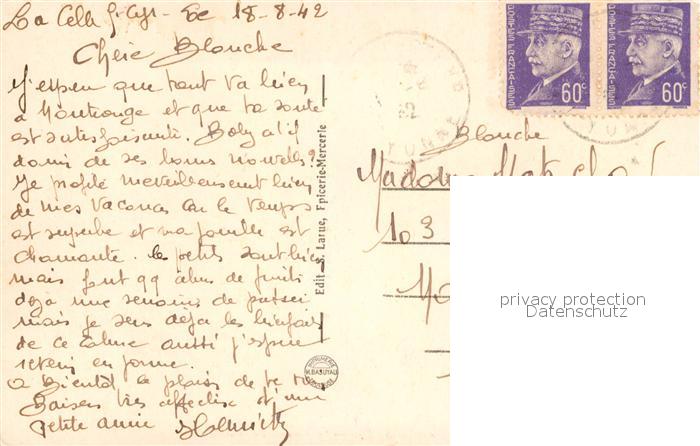 La Celle St-Cyr - Ce 18-8-42
Chère Blanche
J'espère que tout va bien
à Montrouge et que ta santé
est satisfaisante. Boby a t'il
donné de ses bonnes nouvelles?
Je profite merveilleusement bien
de mes vacances car le temps
est superbe et ma famille est
charmante. les petits sont bien
mais font qq abus de fruits
déjà une semaine de passée
mais je sens déjà les bienfaits
de ce calme aussi j'espère
revenir en forme.
A bientôt le plaisir de te
Baisers très affectueux d'une
petite amie
Edit. S. Larue, Epicerie-Mercerie
IMPRIMERIE
H. BASUYAU
POSTES FRANÇAISES
60c
POSTES FRANÇAISES
60c
YONNE
Blanche
Madame
103
privacy protection
Datenschutz